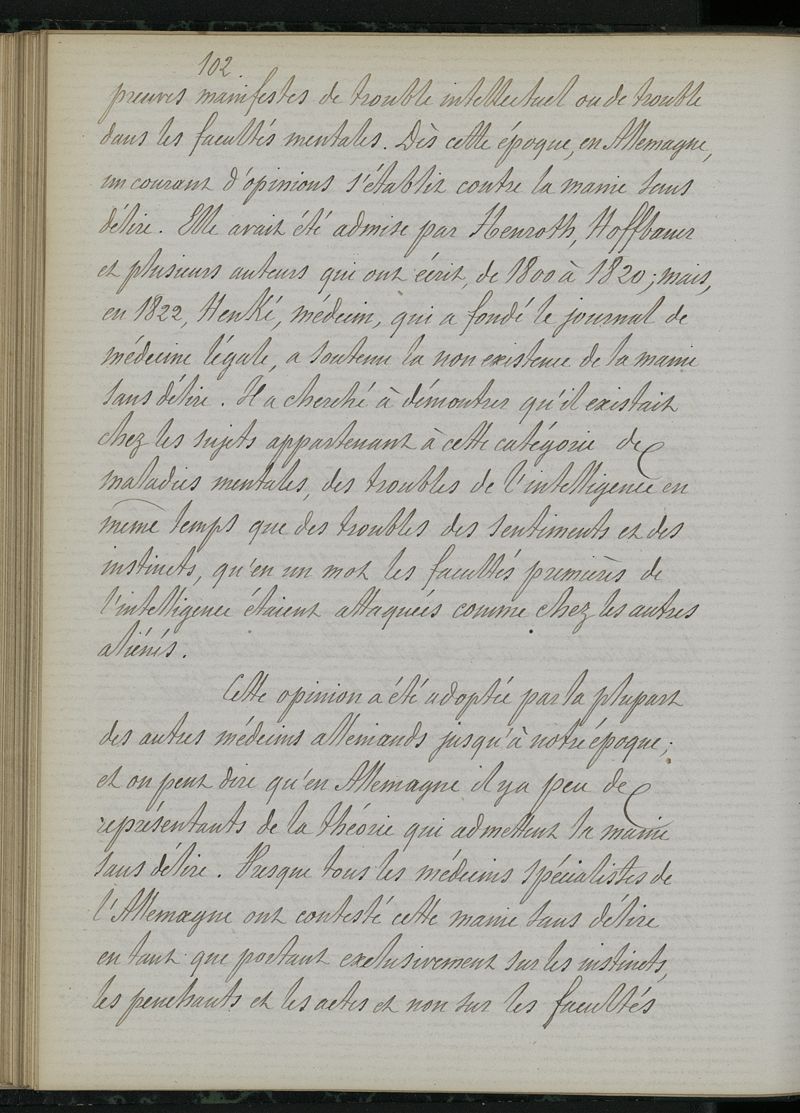 102.
preuves manifestes de trouble intellectuel ou de trouble
dans les facultés mentales. Dès cette époque, en Allemagne,
un courant d'opinions s'établit contre la manie sans
délire. Elle avait été admise par Henroth, Hoffbauer
et plusieurs auteurs qui ont écrit, de 1800 à 1820; mais,
en 1822, Henké, médecin, qui a fondé le journal de
médecine légale, a soutenu la non existence de la manie
sans délire. Il a cherché à démontrer qu'il existait
chez les sujets appartenant à cette catégorie de
maladies mentales, des troubles de l'intelligence en
même temps que des troubles des sentiments et des
instincts, qu'en un mot les facultés premières de
l'intelligence étaient attaquées comme chez les autres
aliénés.
Cette opinion a été adoptée par la plupart
des autres médecins allemands jusqu'à notre époque;
et on peut dire qu'en Allemagne il y a peu de
représentants de la théorie qui admettent la manie
sans délire. Presque tous les médecins spécialistes de
l'Allemagne ont contesté cette manie sans délire
en tant que portant exclusivement sur les instincts,
les penchants et les actes et non sur les facultés